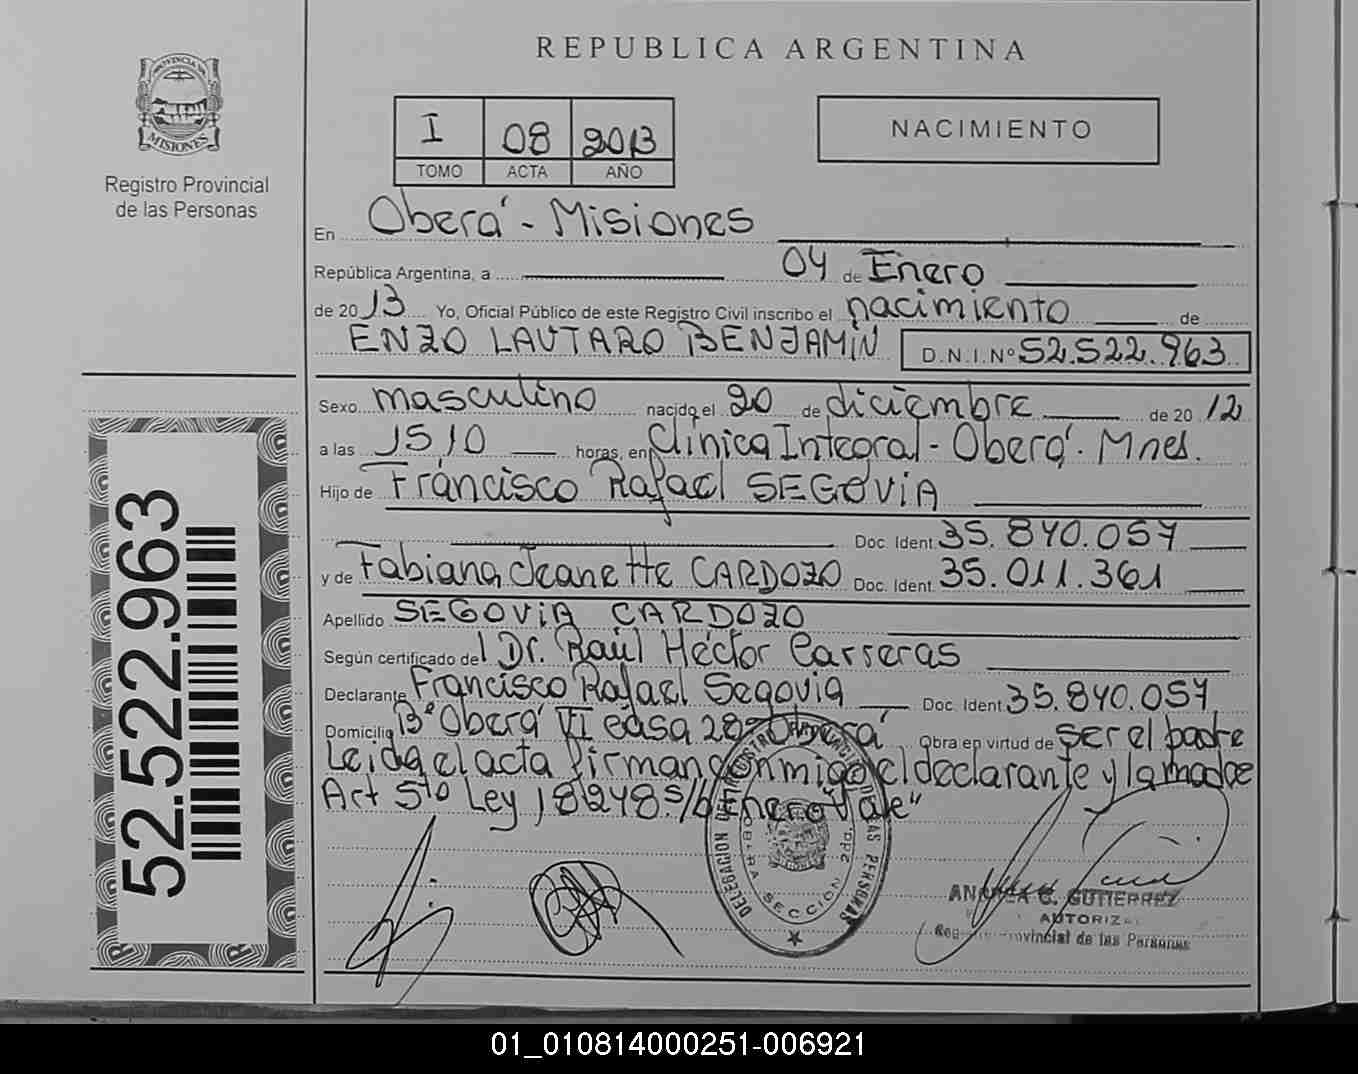 REPUBLICA ARGENTINA
PROVINCIA DE
MISIONES
Registro Provincial
de las Personas
I 08 2013
TOMO ACTA AÑO
NACIMIENTO
En Oberá - Misiones
República Argentina, a 04 de Enero
de 2013 Yo, Oficial Público de este Registro Civil inscribo el nacimiento de
ENZO LAUTARO BENJAMIN D.N.I.Nº 52.522.963
Sexo masculino nacido el 20 de diciembre de 2012
a las 1510 horas, en Clínica Integral - Oberá. Mnes.
Hijo de Francisco Rafael SEGOVIA
Doc. Ident. 35.840.057
y de Fabiana Jeanette CARDOZO Doc. Ident. 35.011.361
Apellido SEGOVIA CARDOZO
Según certificado del Dr. Raúl Héctor Carreras
Declarante Francisco Rafael Segovia Doc. Ident. 35.840.057
Domicilio Bº Oberá VI casa 28 - Oberá Obra en virtud de ser el padre
Leida el acta firman conmigo el declarante y la madre
Art 5to Ley 18248 s/b Enero Vale"
52.522.963
DELEGACION DEL REGISTRO DE LAS PERSONAS
OBERA SECCION 2da.
ANDREA C. GUTIERREZ
AUTORIZ
Provincial de las Personas
01_010814000251-006921